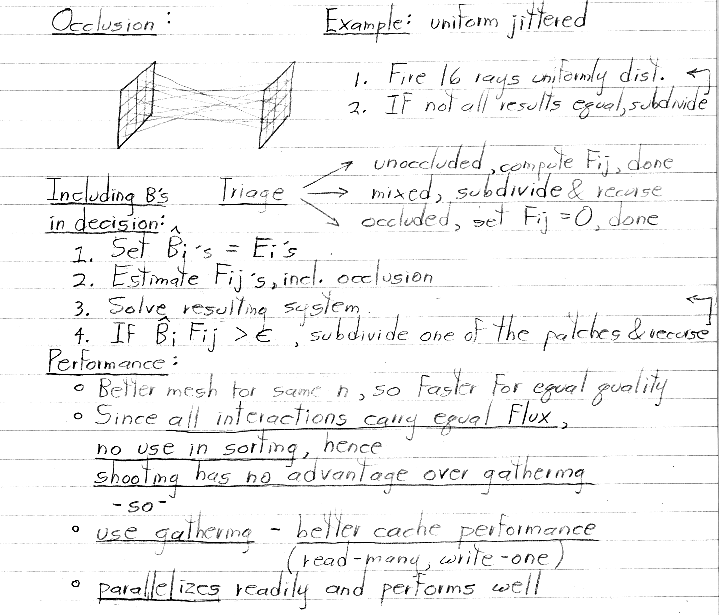 Occlusion:
Example: uniform jittered
1. Fire 16 rays uniformly dist.
2. If not all results equal, subdivide
Including B's
in decision:
Triage
unoccluded, compute Fij, done
mixed, subdivide & recurse
occluded, set Fij = 0, done
1. Set B̂i's = Ei's
2. Estimate Fij's, incl. occlusion
3. Solve resulting system
4. If B̂i Fij > ε, subdivide one of the patches & recurse
Performance:
° Better mesh for same n, so faster for equal quality
° Since all interactions carry equal flux,
no use in sorting, hence
shooting has no advantage over gathering
-so-
° use gathering - better cache performance
(read-many, write-one)
° parallelizes readily and performs well